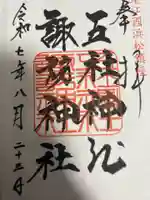 奉拝
五社神社
諏訪神社
令和七年八月二十三日